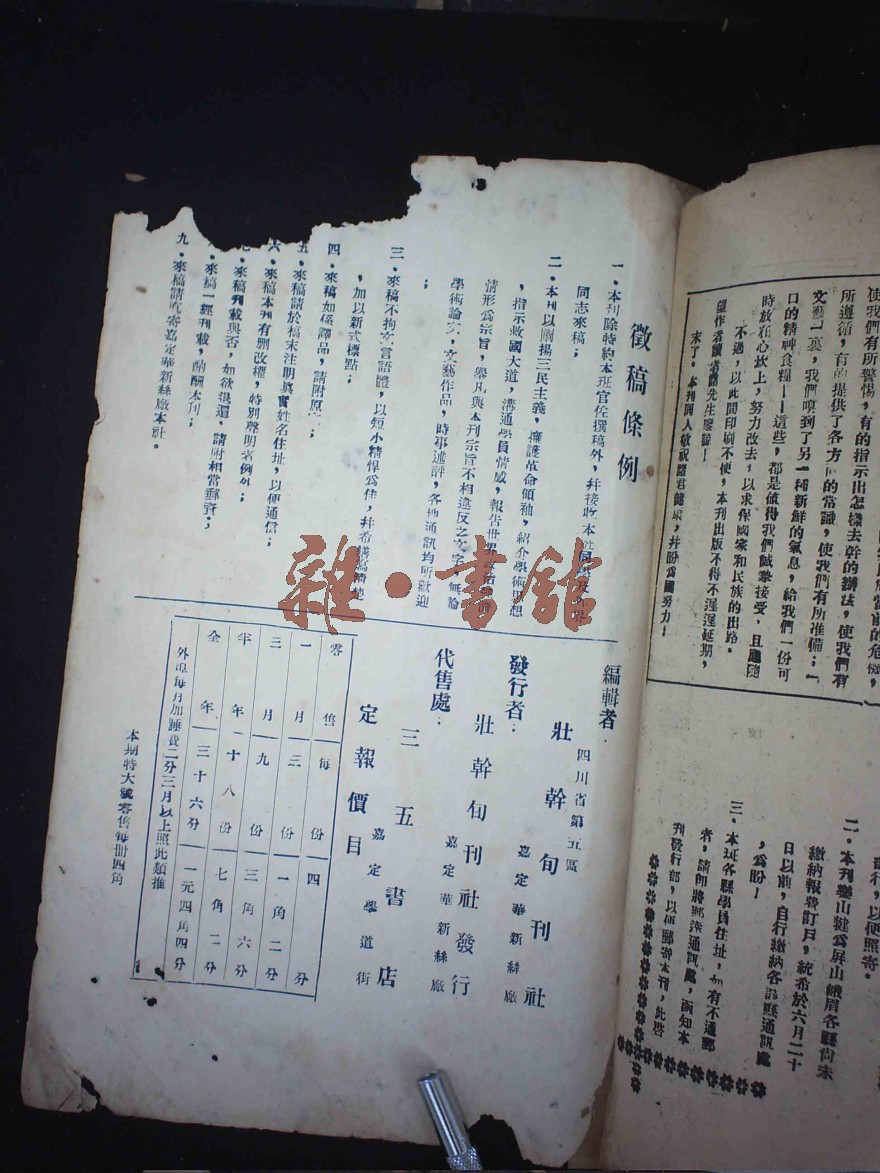 使我們有所警惕，有的指示出怎樣去幹的辦法，使我們有
所遵循，有的提供了各方面的常識，使我們有所準備；「
文藝」裏，我們嗅到了另一種新鮮的氣息，給我們一份可
口的精神食糧——這些，都是値得我們誠摯接受，且應隨
時放在心坎上，努力改去，以求保國家和民族的出路。
不過，以此間印刷不便，本刊出版不得不遲遲延期，
望作者讀者諸先生原諒！
末了，本刊同人敬祝諸君健康，并盼爲國努力！
發行，以便照寄。
二．本刊樂山犍爲屏山峨眉各縣尙未
繳納報費訂戶，統希於六月二十
日以前，自行繳納各該縣通訊處
，爲盼！
三．本班各縣學員住址，如有不通郵
者，請即將郵遞通訊處，函知本
刊發行部，以便郵寄本刊，此啓
徵稿條例
一．本刊除特約本班官佐撰稿外，并接收本班同學及外界
同志來稿；
二．本刊以闡揚三民主義，擁護革命領袖，紹介學術思想
，指示救國大道，溝通學員情感，報告世界政治經濟
情形爲宗旨，舉凡與本刊宗旨不相違反之文字，無論
學術論文，文藝作品，時事述評，各地通訊均所歡迎
；
三．來稿不拘文言語體，以短小精悍爲佳，并希繕寫淸楚
，加以新式標點；
四．來稿如係譯品，請附原文；
五．來稿請於稿末注明眞實姓名住址，以便通信；
六．來稿本刊有删改權，特別聲明者例外；
七．來稿刊載與否，如欲退還，請附相當郵資；
．來稿一經刊載，酌酬本刊；
九．來稿請逕寄嘉定華新絲廠本社。
編輯者：
四川省第五區
壯幹旬刊社
嘉定華新絲廠
發行者：
壯幹旬刊社發行
嘉定華新絲廠
代售處：
三五書店
嘉定學道街
定報價目
零售 每份 四分
一月 三份 一角二分
三月 九份 三角六分
半年 十八份 七角二分
全年 三十六分 一元四角四分
外埠每月加郵費二分三月以上照此類推
本期特大號零售每册四角
雜·書館